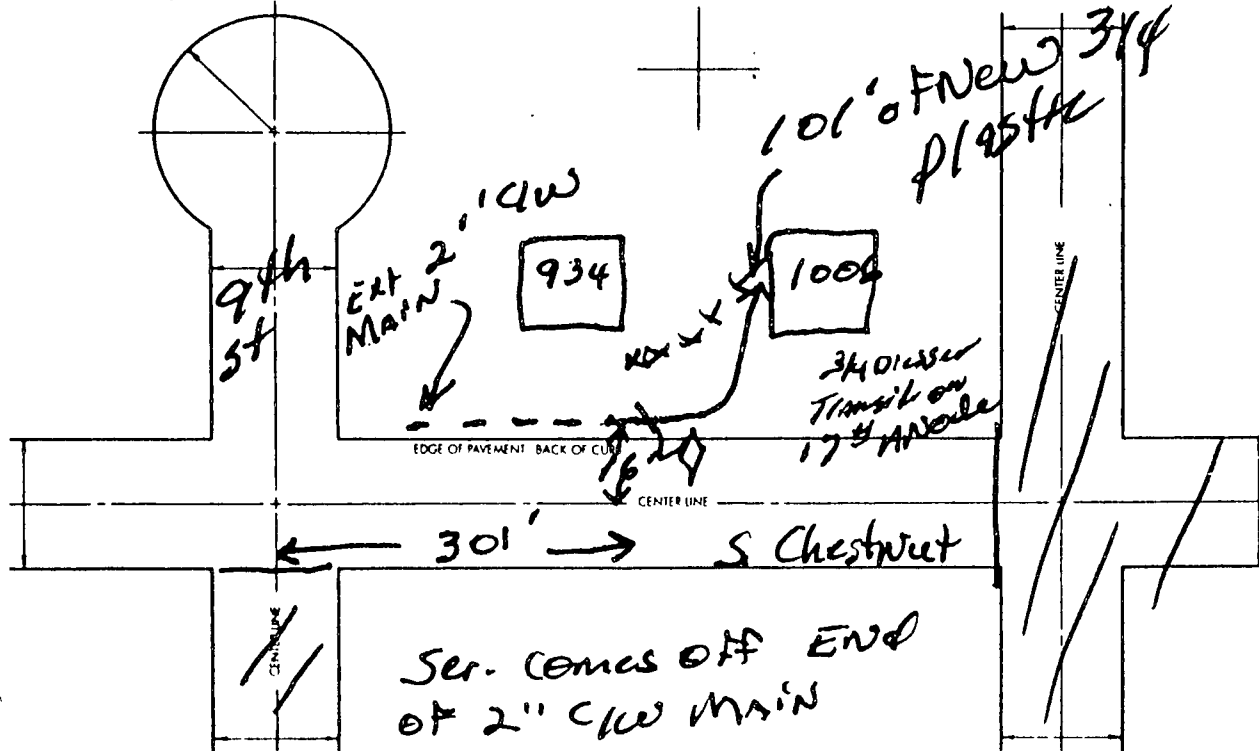 101' of New 3/4
Plastic
Ext 2" C/W
MAIN
9th
st
934
1006
xxxx
3/4 Dresser
Transition
17# ANode
EDGE OF PAVEMENT BACK OF CURB
16
CENTER LINE
CENTER LINE
301'
S Chestnut
CENTER LINE
Ser. comes off END
of 2" C/W MAIN